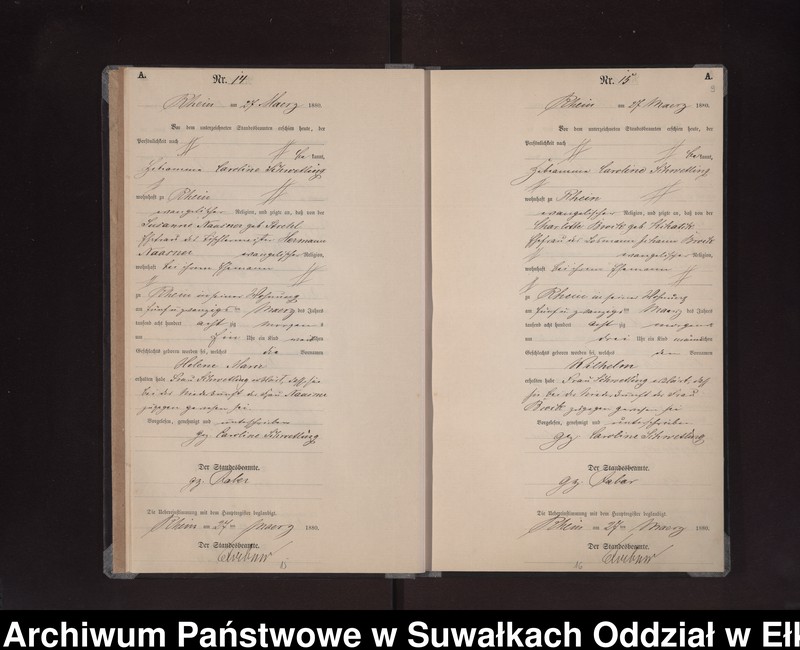 A.
Nr. 14
Rhein am 27. Maerz 1880.
Vor dem unterzeichneten Standesbeamten erschien heute, der
Persönlichkeit nach
be kannt,
Hebamme Caroline Schwetling
wohnhaft zu Rhein
evangelischer Religion, und zeigte an, daß von der
Susanne Naarner geb
Ehefrau des Tischlermeister Hermann
Naarner evangelischer Religion,
wohnhaft bei ihrem Ehemann
zu Rhein in seiner Wohnung
am fünf u zwanzigs ten Maerz des Jahres
tausend acht hundert acht zig morgens
um Uhr ein Kind weib lichen
Geschlechts geboren worden sei, welches die Vornamen
Helene Marie
erhalten habe Frau Schwetling erklärt, daß sie
bei der Niederkunft der Frau Naarner
zugegen gewesen sei
Vorgelesen, genehmigt und unterschrieben
gez Caroline Schwetling
Der Standesbeamte.
gz.
Die Uebereinstimmung mit dem Hauptregister beglaubigt.
Rhein am 27 ten Maerz 1880.
Der Standesbeamte.
15
A.
Nr. 15
9
Rhein am 27. Maerz 1880.
Vor dem unterzeichneten Standesbeamten erschien heute, der
Persönlichkeit nach
be kannt,
Hebamme Caroline Schwetling
wohnhaft zu Rhein
evangelischer Religion, und zeigte an, daß von der
Charlotte geb
Ehefrau des Losmann Johann
evangelischer Religion,
wohnhaft bei ihrem Ehemann
zu Rhein in seiner Wohnung
am fünf u zwanzigs ten Maerz des Jahres
tausend acht hundert acht zig morgens
um drei Uhr ein Kind männlichen
Geschlechts geboren worden sei, welches den Vornamen
Wilhelm
erhalten habe Frau Schwetling erklärt, daß
sie bei der Niederkunft der Frau
zugegen gewesen sei
Vorgelesen, genehmigt und unterschrieben
gez Caroline Schwetling
Der Standesbeamte.
gz.
Die Uebereinstimmung mit dem Hauptregister beglaubigt.
Rhein am 27 ten Maerz 1880.
Der Standesbeamte.
16
Archiwum Państwowe w Suwałkach Oddział w Ełk